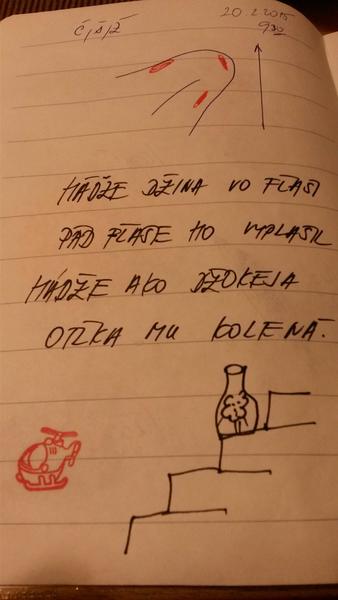 Č, Š, Ž
20.2.2015
9 30
HÁDŽE DŽINA VO FĽAŠI
PÁD FĽAŠE HO VYPLAŠIL
HÁDŽE AKO DŽOKEJA
OTĹKA MU KOLENÁ.